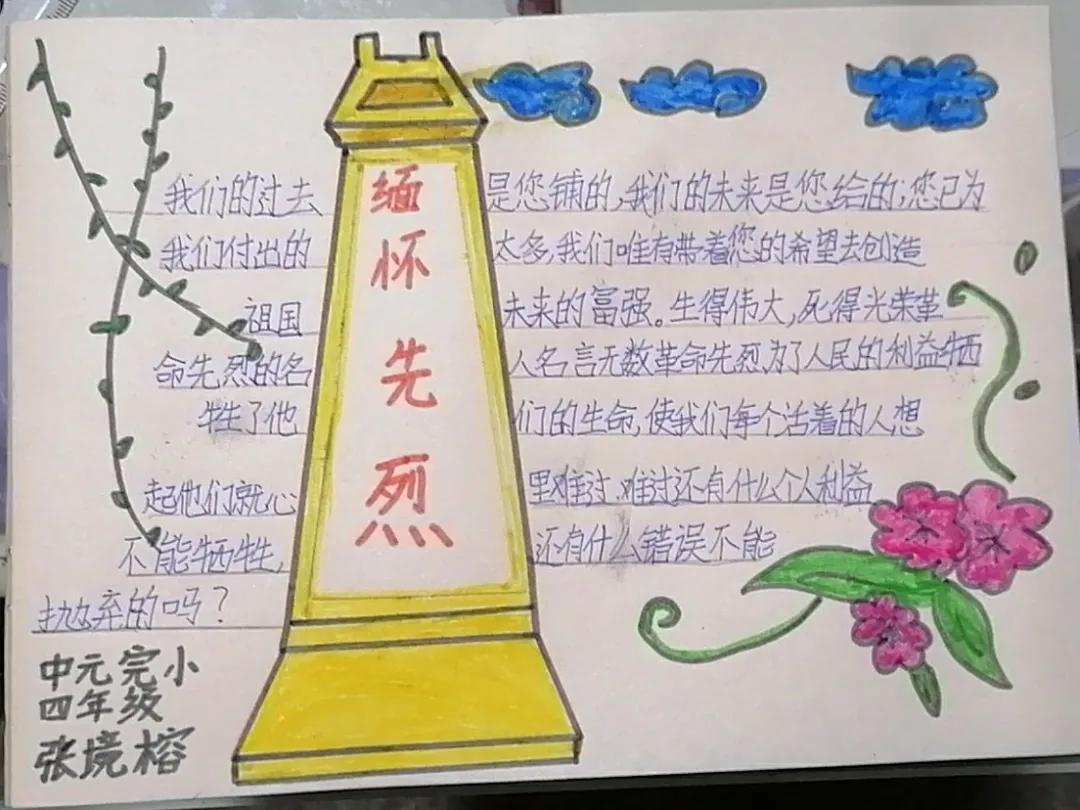 缅怀先烈
我们的过去是您铺的,我们的未来是您给的;您已为
我们付出的太多,我们唯有带着您的希望去创造
祖国未来的富强。生得伟大,死得光荣革
命先烈的名人名言无数革命先烈,为了人民的利益牺
牲了他们的生命,使我们每个活着的人想
起他们就心里难过,难过还有什么个人利益
不能牺牲,还有什么错误不能
抛弃的吗?
中元完小
四年级
张境榕